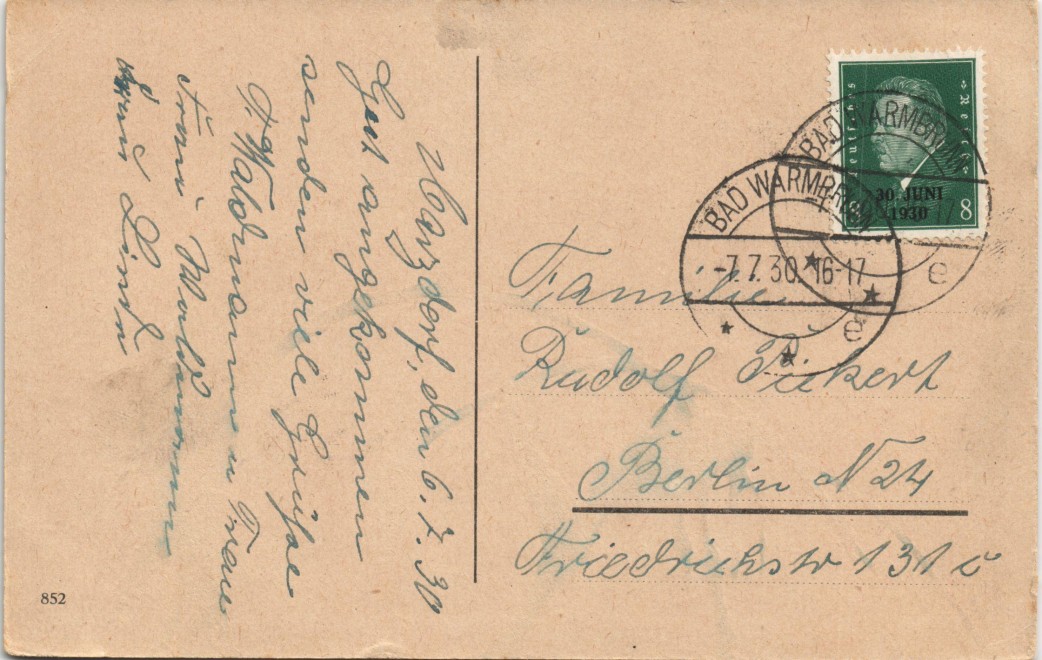 Märzdorf, den 6.7.30
Gut angekommen
senden viele Grüsse
F. Waldmann u Frau
Frau
Frau
Deutsches Reich
30. JUNI
1930
8
BAD WARMBRUNN
BAD WARMBRUNN
-7.7.30. 16-17
e
e
Familie
Rudolf
Berlin N 24
Friedrichstr 131 c
852